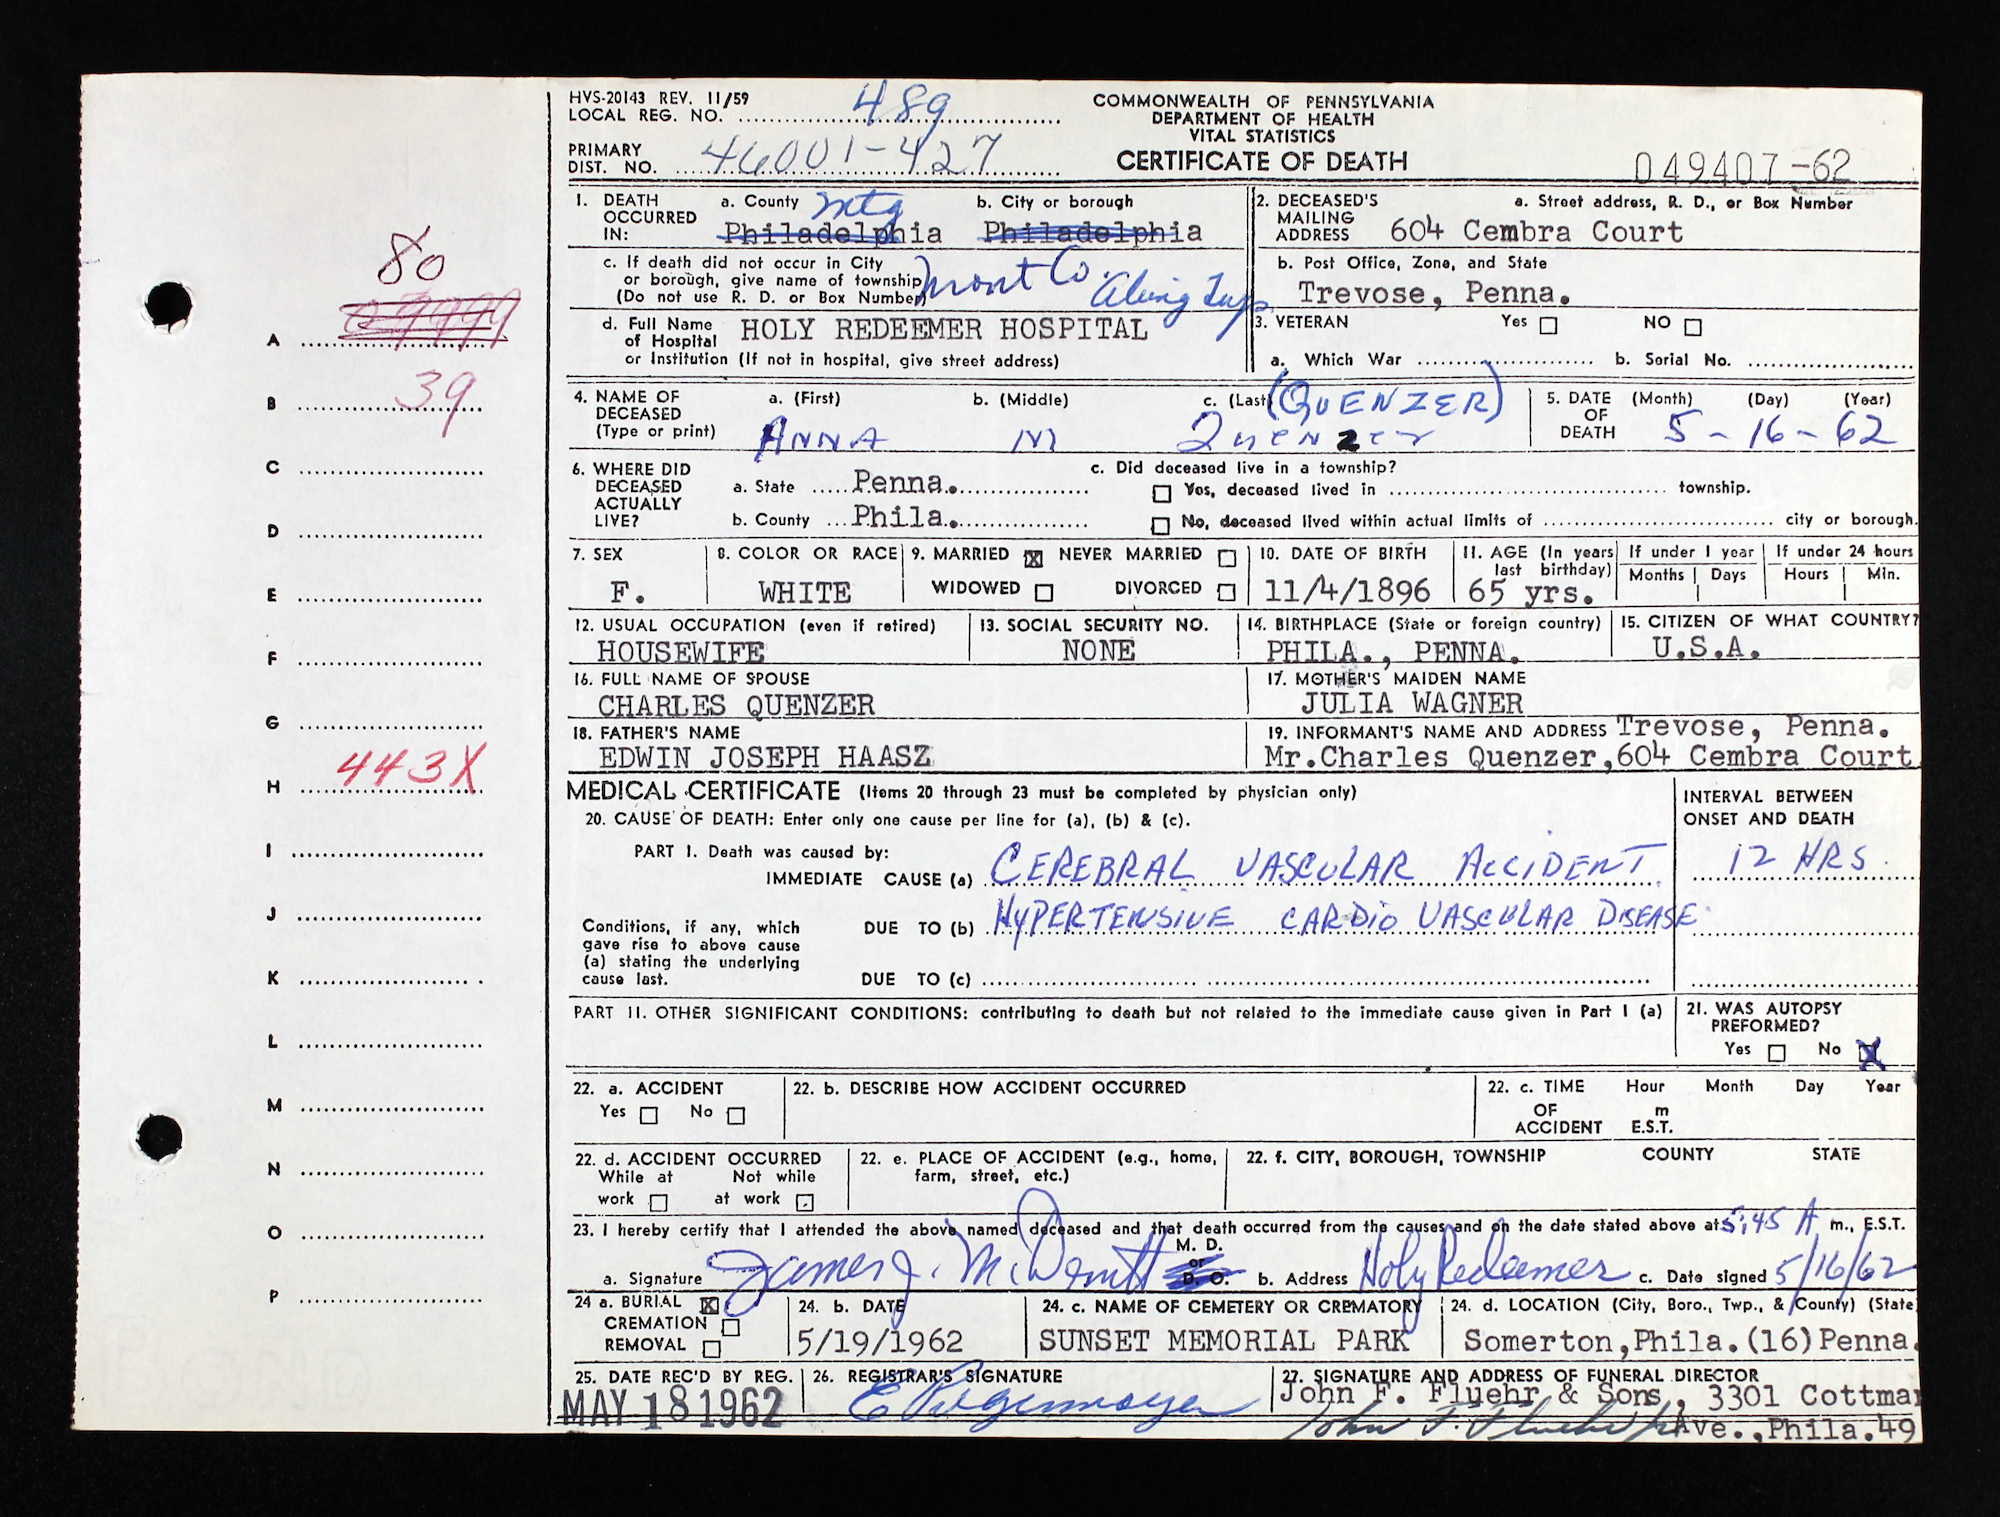 HVS-20143 REV. 11/59
LOCAL REG. NO. 489
COMMONWEALTH OF PENNSYLVANIA
DEPARTMENT OF HEALTH
VITAL STATISTICS
CERTIFICATE OF DEATH
PRIMARY
DIST. NO. 46001-427
049407-62
1. DEATH OCCURRED IN:
a. County Mtg Philadelphia
b. City or borough Philadelphia
c. If death did not occur in City
or borough, give name of township
(Do not use R. D. or Box Number)
Mont Co.
d. Full Name HOLY REDEEMER HOSPITAL
of Hospital
or Institution (If not in hospital, give street address)
2. DECEASED'S MAILING ADDRESS
a. Street address, R. D., or Box Number
604 Cembra Court
b. Post Office, Zone, and State
Trevose, Penna.
3. VETERAN Yes NO
a. Which War b. Serial No.
4. NAME OF DECEASED (Type or print)
a. (First) b. (Middle) c. (Last) (QUENZER)
ANNA M Quenzer
5. DATE OF DEATH (Month) (Day) (Year)
5-16-62
6. WHERE DID DECEASED ACTUALLY LIVE?
a. State Penna.
b. County Phila.
c. Did deceased live in a township?
Yes, deceased lived in township.
No, deceased lived within actual limits of city or borough.
7. SEX
F.
8. COLOR OR RACE
WHITE
9. MARRIED X NEVER MARRIED
WIDOWED DIVORCED
10. DATE OF BIRTH
11/4/1896
11. AGE (In years last birthday)
65 yrs.
If under 1 year
Months Days
If under 24 hours
Hours Min.
12. USUAL OCCUPATION (even if retired)
HOUSEWIFE
13. SOCIAL SECURITY NO.
NONE
14. BIRTHPLACE (State or foreign country)
PHILA., PENNA.
15. CITIZEN OF WHAT COUNTRY?
U.S.A.
16. FULL NAME OF SPOUSE
CHARLES QUENZER
17. MOTHER'S MAIDEN NAME
JULIA WAGNER
18. FATHER'S NAME
EDWIN JOSEPH HAASZ
19. INFORMANT'S NAME AND ADDRESS Trevose, Penna.
Mr.Charles Quenzer,604 Cembra Court
MEDICAL CERTIFICATE (Items 20 through 23 must be completed by physician only)
20. CAUSE OF DEATH: Enter only one cause per line for (a), (b) & (c).
INTERVAL BETWEEN
ONSET AND DEATH
PART I. Death was caused by:
IMMEDIATE CAUSE (a) CEREBRAL VASCULAR ACCIDENT 12 HRS.
Conditions, if any, which
gave rise to above cause
(a) stating the underlying
cause last.
DUE TO (b) HYPERTENSIVE CARDIO VASCULAR DISEASE
DUE TO (c)
PART II. OTHER SIGNIFICANT CONDITIONS: contributing to death but not related to the immediate cause given in Part I (a)
21. WAS AUTOPSY
PREFORMED?
Yes No X
22. a. ACCIDENT
Yes No
22. b. DESCRIBE HOW ACCIDENT OCCURRED
22. c. TIME Hour Month Day Year
OF m
ACCIDENT E.S.T.
22. d. ACCIDENT OCCURRED
While at Not while
work at work
22. e. PLACE OF ACCIDENT (e.g., home,
farm, street, etc.)
22. f. CITY, BOROUGH, TOWNSHIP COUNTY STATE
23. I hereby certify that I attended the above named deceased and that death occurred from the causes and on the date stated above at 5:45 A m., E.S.T.
M. D.
or
D. O.
a. Signature James J. McDevitt b. Address Holy Redeemer c. Date signed 5/16/62
24 a. BURIAL X
CREMATION
REMOVAL
24. b. DATE
5/19/1962
24. c. NAME OF CEMETERY OR CREMATORY
SUNSET MEMORIAL PARK
24. d. LOCATION (City, Boro., Twp., & County) (State
Somerton,Phila.(16)Penna.
25. DATE REC'D BY REG.
MAY 18 1962
26. REGISTRAR'S SIGNATURE
27. SIGNATURE AND ADDRESS OF FUNERAL DIRECTOR
John F. Fluehr & Sons, 3301 Cottman
John F. Fluehr Jr
Ave.,Phila.49
80
A
B 39
C
D
E
F
G
H 443X
I
J
K
L
M
N
O
P